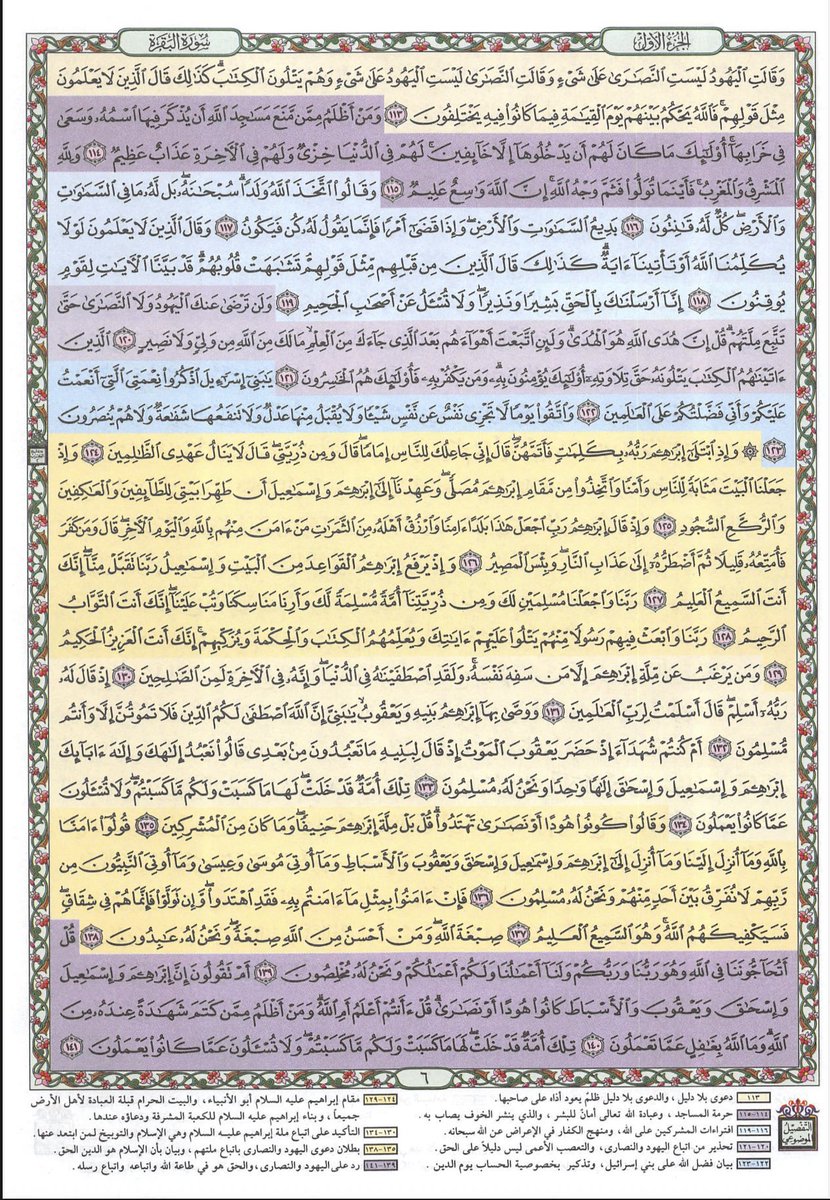 الجزء الأول
سورة البقرة
وَقَالَتِ ٱلْيَهُودُ لَيْسَتِ ٱلنَّصَٰرَىٰ عَلَىٰ شَىْءٍ وَقَالَتِ ٱلنَّصَٰرَىٰ لَيْسَتِ ٱلْيَهُودُ عَلَىٰ شَىْءٍ وَهُمْ يَتْلُونَ ٱلْكِتَٰبَ ۗ كَذَٰلِكَ قَالَ ٱلَّذِينَ لَا يَعْلَمُونَ
مِثْلَ قَوْلِهِمْ ۚ فَٱللَّهُ يَحْكُمُ بَيْنَهُمْ يَوْمَ ٱلْقِيَٰمَةِ فِيمَا كَانُوا۟ فِيهِ يَخْتَلِفُونَ ١١٣ وَمَنْ أَظْلَمُ مِمَّن مَّنَعَ مَسَٰجِدَ ٱللَّهِ أَن يُذْكَرَ فِيهَا ٱسْمُهُۥ وَسَعَىٰ
فِى خَرَابِهَآ ۚ أُو۟لَٰٓئِكَ مَا كَانَ لَهُمْ أَن يَدْخُلُوهَآ إِلَّا خَآئِفِينَ ۚ لَهُمْ فِى ٱلدُّنْيَا خِزْىٌ وَلَهُمْ فِى ٱلْءَاخِرَةِ عَذَابٌ عَظِيمٌ ١١٤ وَلِلَّهِ
ٱلْمَشْرِقُ وَٱلْمَغْرِبُ ۚ فَأَيْنَمَا تُوَلُّوا۟ فَثَمَّ وَجْهُ ٱللَّهِ ۚ إِنَّ ٱللَّهَ وَٰسِعٌ عَلِيمٌ ١١٥ وَقَالُوا۟ ٱتَّخَذَ ٱللَّهُ وَلَدًا ۗ سُبْحَٰنَهُۥ ۖ بَل لَّهُۥ مَا فِى ٱلسَّمَٰوَٰتِ
وَٱلْأَرْضِ ۖ كُلٌّ لَّهُۥ قَٰنِتُونَ ١١٦ بَدِيعُ ٱلسَّمَٰوَٰتِ وَٱلْأَرْضِ ۖ وَإِذَا قَضَىٰٓ أَمْرًا فَإِنَّمَا يَقُولُ لَهُۥ كُن فَيَكُونُ ١١٧ وَقَالَ ٱلَّذِينَ لَا يَعْلَمُونَ لَوْلَا
يُكَلِّمُنَا ٱللَّهُ أَوْ تَأْتِينَآ ءَايَةٌ ۗ كَذَٰلِكَ قَالَ ٱلَّذِينَ مِن قَبْلِهِم مِّثْلَ قَوْلِهِمْ ۘ تَشَٰبَهَتْ قُلُوبُهُمْ ۗ قَدْ بَيَّنَّا ٱلْءَايَٰتِ لِقَوْمٍ
يُوقِنُونَ ١١٨ إِنَّآ أَرْسَلْنَٰكَ بِٱلْحَقِّ بَشِيرًا وَنَذِيرًا ۖ وَلَا تُسْـَٔلُ عَنْ أَصْحَٰبِ ٱلْجَحِيمِ ١١٩ وَلَن تَرْضَىٰ عَنكَ ٱلْيَهُودُ وَلَا ٱلنَّصَٰرَىٰ حَتَّىٰ
تَتَّبِعَ مِلَّتَهُمْ ۗ قُلْ إِنَّ هُدَى ٱللَّهِ هُوَ ٱلْهُدَىٰ ۗ وَلَئِنِ ٱتَّبَعْتَ أَهْوَآءَهُم بَعْدَ ٱلَّذِى جَآءَكَ مِنَ ٱلْعِلْمِ ۙ مَا لَكَ مِنَ ٱللَّهِ مِن وَلِىٍّ وَلَا نَصِيرٍ ١٢٠ ٱلَّذِينَ
ءَاتَيْنَٰهُمُ ٱلْكِتَٰبَ يَتْلُونَهُۥ حَقَّ تِلَاوَتِهِۦٓ أُو۟لَٰٓئِكَ يُؤْمِنُونَ بِهِۦ ۗ وَمَن يَكْفُرْ بِهِۦ فَأُو۟لَٰٓئِكَ هُمُ ٱلْخَٰسِرُونَ ١٢١ يَٰبَنِىٓ إِسْرَٰٓءِيلَ ٱذْكُرُوا۟ نِعْمَتِىَ ٱلَّتِىٓ أَنْعَمْتُ
عَلَيْكُمْ وَأَنِّى فَضَّلْتُكُمْ عَلَى ٱلْعَٰلَمِينَ ١٢٢ وَٱتَّقُوا۟ يَوْمًا لَّا تَجْزِى نَفْسٌ عَن نَّفْسٍ شَيْـًٔا وَلَا يُقْبَلُ مِنْهَا عَدْلٌ وَلَا تَنفَعُهَا شَفَٰعَةٌ وَلَا هُمْ يُنصَرُونَ
١٢٣ ۞ وَإِذِ ٱبْتَلَىٰٓ إِبْرَٰهِۦمَ رَبُّهُۥ بِكَلِمَٰتٍ فَأَتَمَّهُنَّ ۖ قَالَ إِنِّى جَاعِلُكَ لِلنَّاسِ إِمَامًا ۖ قَالَ وَمِن ذُرِّيَّتِى ۖ قَالَ لَا يَنَالُ عَهْدِى ٱلظَّٰلِمِينَ ١٢٤ وَإِذْ
جَعَلْنَا ٱلْبَيْتَ مَثَابَةً لِّلنَّاسِ وَأَمْنًا وَٱتَّخِذُوا۟ مِن مَّقَامِ إِبْرَٰهِۦمَ مُصَلًّى ۖ وَعَهِدْنَآ إِلَىٰٓ إِبْرَٰهِۦمَ وَإِسْمَٰعِيلَ أَن طَهِّرَا بَيْتِىَ لِلطَّآئِفِينَ وَٱلْعَٰكِفِينَ
وَٱلرُّكَّعِ ٱلسُّجُودِ ١٢٥ وَإِذْ قَالَ إِبْرَٰهِۦمُ رَبِّ ٱجْعَلْ هَٰذَا بَلَدًا ءَامِنًا وَٱرْزُقْ أَهْلَهُۥ مِنَ ٱلثَّمَرَٰتِ مَنْ ءَامَنَ مِنْهُم بِٱللَّهِ وَٱلْيَوْمِ ٱلْءَاخِرِ ۖ قَالَ وَمَن كَفَرَ
فَأُمَتِّعُهُۥ قَلِيلًا ثُمَّ أَضْطَرُّهُۥٓ إِلَىٰ عَذَابِ ٱلنَّارِ ۖ وَبِئْسَ ٱلْمَصِيرُ ١٢٦ وَإِذْ يَرْفَعُ إِبْرَٰهِۦمُ ٱلْقَوَاعِدَ مِنَ ٱلْبَيْتِ وَإِسْمَٰعِيلُ رَبَّنَا تَقَبَّلْ مِنَّآ ۖ إِنَّكَ
أَنتَ ٱلسَّمِيعُ ٱلْعَلِيمُ ١٢٧ رَبَّنَا وَٱجْعَلْنَا مُسْلِمَيْنِ لَكَ وَمِن ذُرِّيَّتِنَآ أُمَّةً مُّسْلِمَةً لَّكَ وَأَرِنَا مَنَاسِكَنَا وَتُبْ عَلَيْنَآ ۖ إِنَّكَ أَنتَ ٱلتَّوَّابُ
ٱلرَّحِيمُ ١٢٨ رَبَّنَا وَٱبْعَثْ فِيهِمْ رَسُولًا مِّنْهُمْ يَتْلُوا۟ عَلَيْهِمْ ءَايَٰتِكَ وَيُعَلِّمُهُمُ ٱلْكِتَٰبَ وَٱلْحِكْمَةَ وَيُزَكِّيهِمْ ۚ إِنَّكَ أَنتَ ٱلْعَزِيزُ ٱلْحَكِيمُ
١٢٩ وَمَن يَرْغَبُ عَن مِّلَّةِ إِبْرَٰهِۦمَ إِلَّا مَن سَفِهَ نَفْسَهُۥ ۚ وَلَقَدِ ٱصْطَفَيْنَٰهُ فِى ٱلدُّنْيَا ۖ وَإِنَّهُۥ فِى ٱلْءَاخِرَةِ لَمِنَ ٱلصَّٰلِحِينَ ١٣٠ إِذْ قَالَ لَهُۥ
رَبُّهُۥٓ أَسْلِمْ ۖ قَالَ أَسْلَمْتُ لِرَبِّ ٱلْعَٰلَمِينَ ١٣١ وَوَصَّىٰ بِهَآ إِبْرَٰهِۦمُ بَنِيهِ وَيَعْقُوبُ يَٰبَنِىَّ إِنَّ ٱللَّهَ ٱصْطَفَىٰ لَكُمُ ٱلدِّينَ فَلَا تَمُوتُنَّ إِلَّا وَأَنتُم
مُّسْلِمُونَ ١٣٢ أَمْ كُنتُمْ شُهَدَآءَ إِذْ حَضَرَ يَعْقُوبَ ٱلْمَوْتُ إِذْ قَالَ لِبَنِيهِ مَا تَعْبُدُونَ مِنۢ بَعْدِى قَالُوا۟ نَعْبُدُ إِلَٰهَكَ وَإِلَٰهَ ءَابَآئِكَ
إِبْرَٰهِۦمَ وَإِسْمَٰعِيلَ وَإِسْحَٰقَ إِلَٰهًا وَٰحِدًا وَنَحْنُ لَهُۥ مُسْلِمُونَ ١٣٣ تِلْكَ أُمَّةٌ قَدْ خَلَتْ ۖ لَهَا مَا كَسَبَتْ وَلَكُم مَّا كَسَبْتُمْ ۖ وَلَا تُسْـَٔلُونَ
عَمَّا كَانُوا۟ يَعْمَلُونَ ١٣٤ وَقَالُوا۟ كُونُوا۟ هُودًا أَوْ نَصَٰرَىٰ تَهْتَدُوا۟ ۗ قُلْ بَلْ مِلَّةَ إِبْرَٰهِۦمَ حَنِيفًا ۖ وَمَا كَانَ مِنَ ٱلْمُشْرِكِينَ ١٣٥ قُولُوٓا۟ ءَامَنَّا
بِٱللَّهِ وَمَآ أُنزِلَ إِلَيْنَا وَمَآ أُنزِلَ إِلَىٰٓ إِبْرَٰهِۦمَ وَإِسْمَٰعِيلَ وَإِسْحَٰقَ وَيَعْقُوبَ وَٱلْأَسْبَاطِ وَمَآ أُوتِىَ مُوسَىٰ وَعِيسَىٰ وَمَآ أُوتِىَ ٱلنَّبِيُّونَ مِن
رَّبِّهِمْ لَا نُفَرِّقُ بَيْنَ أَحَدٍ مِّنْهُمْ وَنَحْنُ لَهُۥ مُسْلِمُونَ ١٣٦ فَإِنْ ءَامَنُوا۟ بِمِثْلِ مَآ ءَامَنتُم بِهِۦ فَقَدِ ٱهْتَدَوا۟ ۖ وَّإِن تَوَلَّوْا۟ فَإِنَّمَا هُمْ فِى شِقَاقٍ ۖ
فَسَيَكْفِيكَهُمُ ٱللَّهُ ۚ وَهُوَ ٱلسَّمِيعُ ٱلْعَلِيمُ ١٣٧ صِبْغَةَ ٱللَّهِ ۖ وَمَنْ أَحْسَنُ مِنَ ٱللَّهِ صِبْغَةً ۖ وَنَحْنُ لَهُۥ عَٰبِدُونَ ١٣٨ قُلْ
أَتُحَآجُّونَنَا فِى ٱللَّهِ وَهُوَ رَبُّنَا وَرَبُّكُمْ وَلَنَآ أَعْمَٰلُنَا وَلَكُمْ أَعْمَٰلُكُمْ وَنَحْنُ لَهُۥ مُخْلِصُونَ ١٣٩ أَمْ تَقُولُونَ إِنَّ إِبْرَٰهِۦمَ وَإِسْمَٰعِيلَ
وَإِسْحَٰقَ وَيَعْقُوبَ وَٱلْأَسْبَاطَ كَانُوا۟ هُودًا أَوْ نَصَٰرَىٰ ۗ قُلْ ءَأَنتُمْ أَعْلَمُ أَمِ ٱللَّهُ ۗ وَمَنْ أَظْلَمُ مِمَّن كَتَمَ شَهَٰدَةً عِندَهُۥ مِنَ
ٱللَّهِ ۗ وَمَا ٱللَّهُ بِغَٰفِلٍ عَمَّا تَعْمَلُونَ ١٤٠ تِلْكَ أُمَّةٌ قَدْ خَلَتْ ۖ لَهَا مَا كَسَبَتْ وَلَكُم مَّا كَسَبْتُمْ ۖ وَلَا تُسْـَٔلُونَ عَمَّا كَانُوا۟ يَعْمَلُونَ ١٤١
٦
التفصيل
الموضوعي
١١٣ دعوى بلا دليل ، والدعوى بلا دليل ظلمٌ يعود أذاه على صاحبها .
١١٤-١١٥ حرمة المساجد ، وعبادة الله تعالى أمانٌ للبشر ، والذي ينشر الخوف يصاب به .
١١٦-١١٩ افتراءات المشركين على الله ، ومنهج الكفار في الإعراض عن الله سبحانه .
١٢٠-١٢١ تحذير من اتباع اليهود والنصارى ، والتعصب الأعمى ليس دليلاً على الحق .
١٢٢-١٢٣ بيان فضل الله على بني إسرائيل ، وتذكير بخصوصية الحساب يوم الدين .
١٢٤-١٢٩ مقام إبراهيم عليه السلام أبو الأنبياء ، والبيت الحرام قبلة العبادة لأهل الأرض
جميعاً ، وبناء إبراهيم عليه السلام للكعبة المشرفة ودعاؤه عندها .
١٣٠-١٣٤ التأكيد على اتباع ملة إبراهيم عليه السلام وهي الإسلام والتوبيخ لمن ابتعد عنها .
١٣٥-١٣٨ بطلان دعوى اليهود والنصارى باتباع ملتهم ، وبيان بأن الإسلام هو الدين الحق .
١٣٩-١٤١ رد على اليهود والنصارى، والحق هو في طاعة الله واتباعه واتباع رسله .